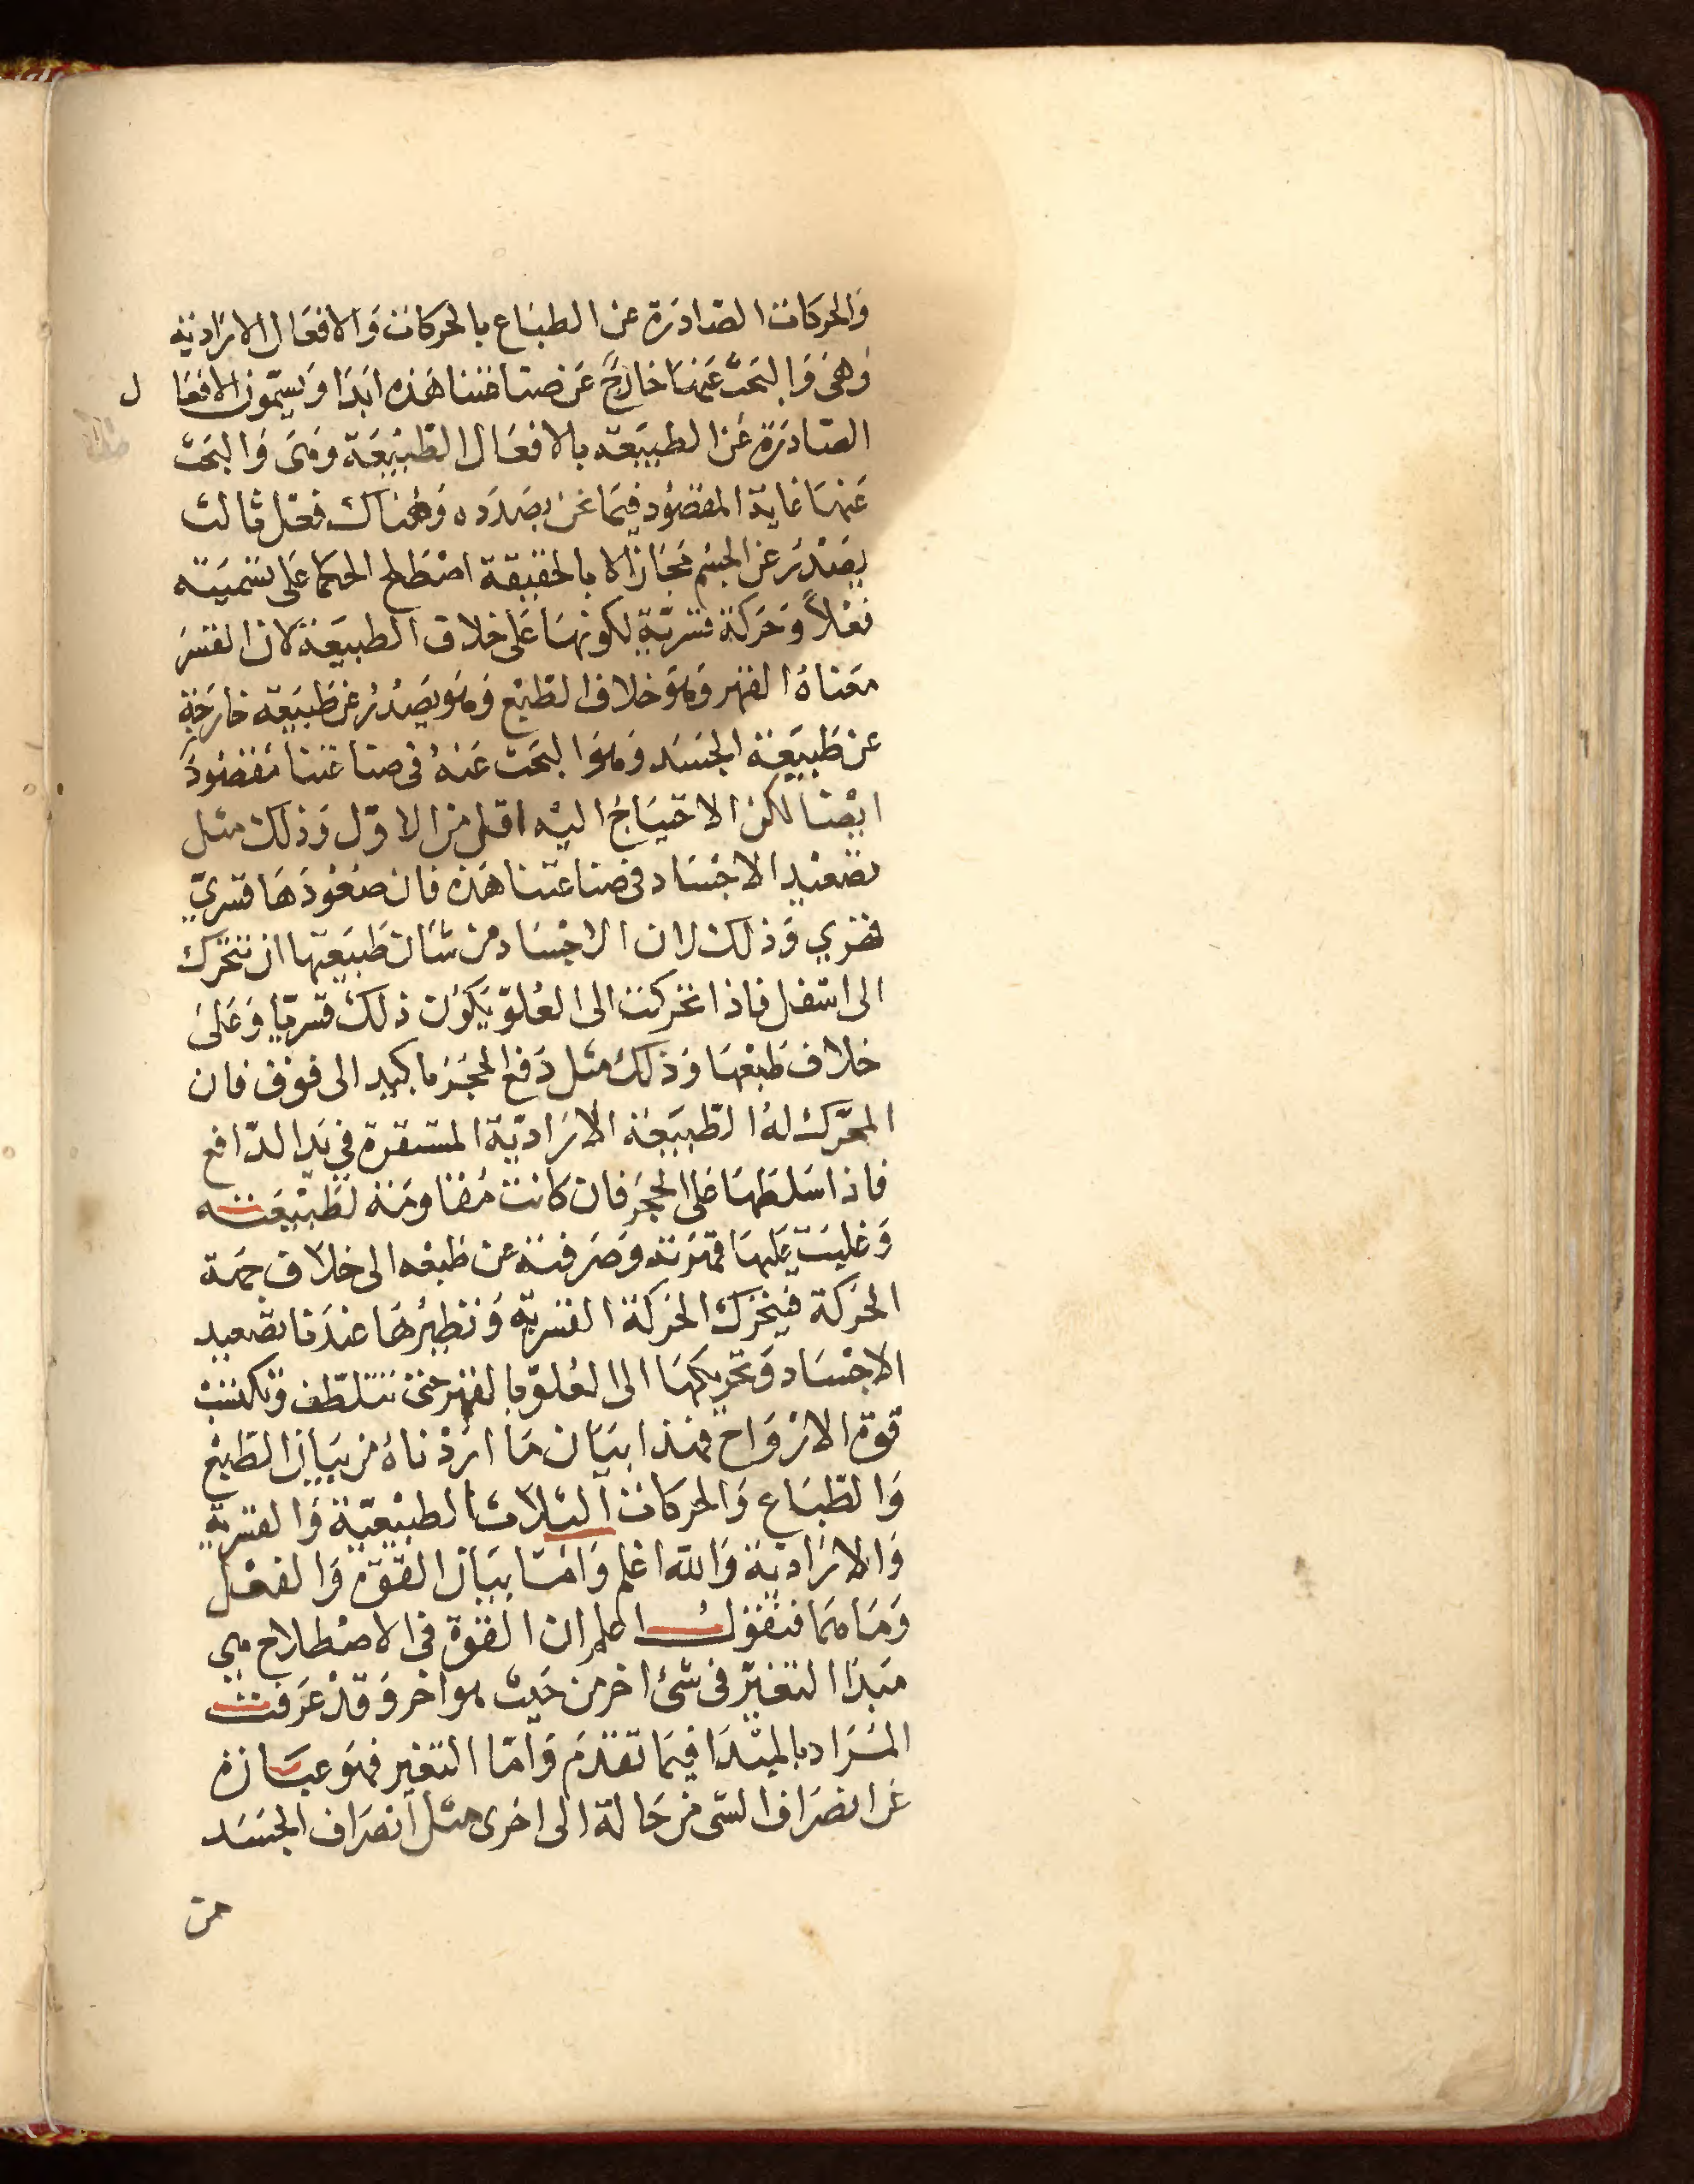 والحركات الصادرة عن الطباع بالحركات والافعال الارادية
وهي والبحث عنها خارج عن صناعتنا هذه ابدا ويسمون الافعال
الصادرة عن الطبيعة بالافعال الطبيعة وهي والبحث
عنها غاية المقصود فيما نحن بصدده وهناك فعل ثالث
يصدر عن الجسم مجازا لا بالحقيقة اصطلح الحكما على تسميته
فعلا وحركة قسرية لكونها على خلاف الطبيعة لان القسر
معناه القهر وهو خلاف الطبع وهو يصدر عن طبيعة خارجة
عن طبيعة الجسد وهو والبحث عنه في صناعتنا مقصود
ايضا لكن الاحتياج اليه اقل من الاول وذلك مثل
تصعيد الاجساد في صناعتنا هذه فان صعودها قسري
قهري وذلك لان الاجساد من شان طبيعتها ان تتحرك
الى اسفل فاذا تحركت الى العلو يكون ذلك قسريا وعلى
خلاف طبعها وذلك مثل دفع الحجر باليد الى فوق فان
المحرك له الطبيعة الارادية المستقرة في يد الدافع
فاذا سلطها على الحجر فان كانت مقاومة لطبيعته
وغلبت عليها قهرته وصرفته عن طبعه الى خلاف جهة
الحركة فيتحرك الحركة القسرية ونظيرها عندنا تصعيد
الاجساد وتحريكها الى العلو بالقهر حتى تتلطف وتكتسب
قوة الارواح فهذا بيان ما اردناه من بيان الطبع
والطباع والحركات الثلاث الطبيعية والقسرية
والارادية والله اعلم واما بيان القوة والفعل
وما هما فنقول اعلم ان القوة في الاصطلاح هي
مبدا التغير في شئ اخر من حيث هو اخر وقد عرفت
المراد بالمبدا فيما تقدم واما التغير فهو عبارة
عن انصراف الشى من حالة الى اخرى مثل انصراف الجسد
من